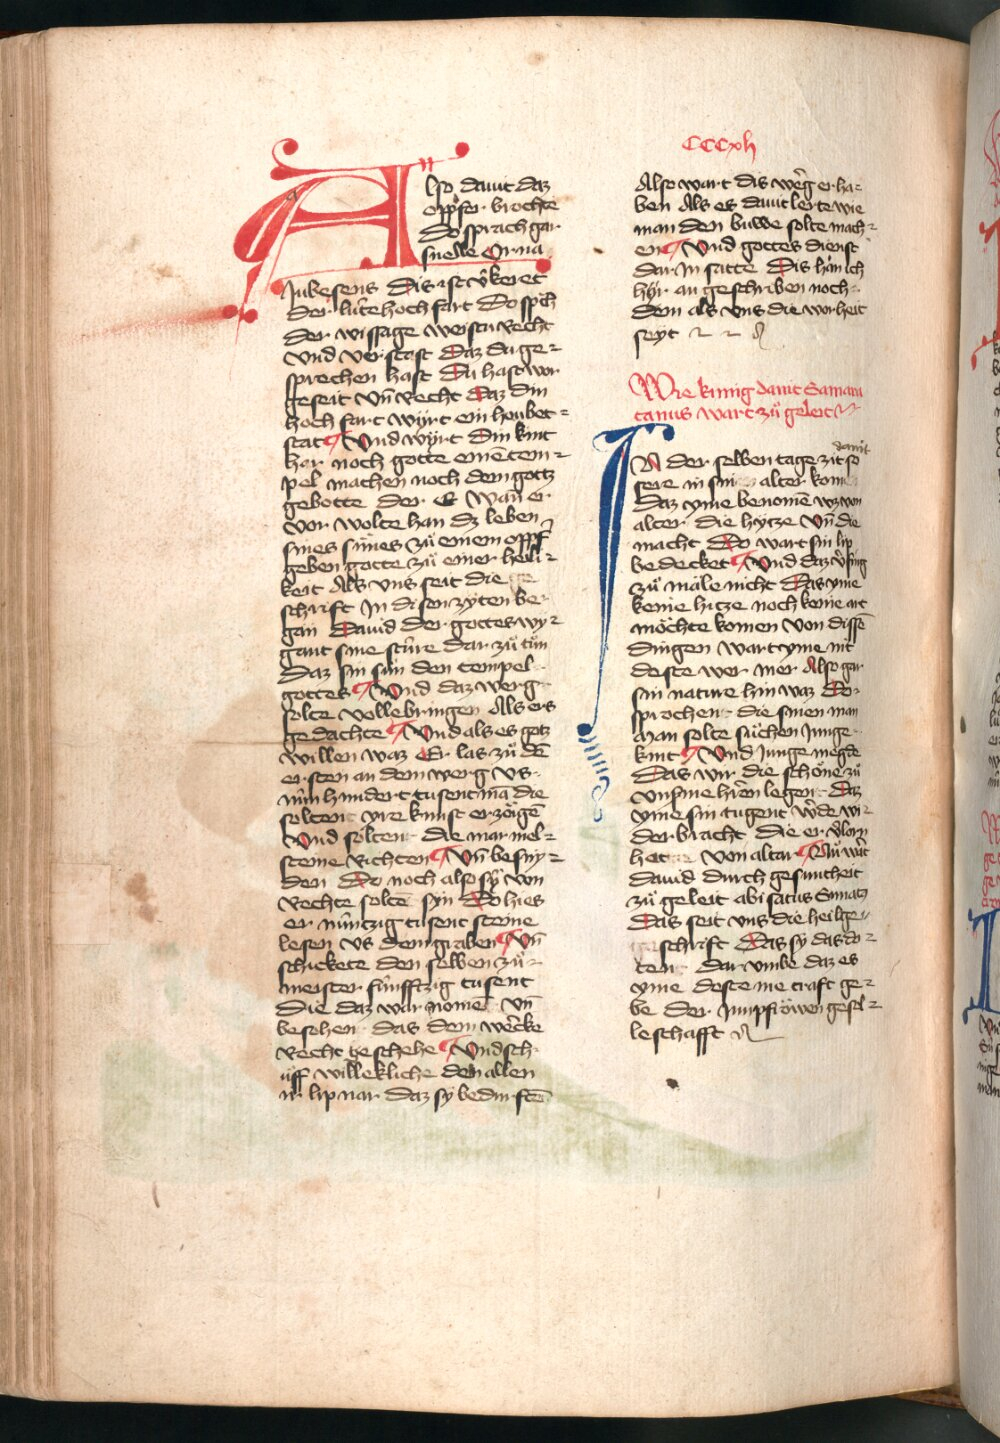 Also dauit daz
opffer brochte
Do sprach gar
snelle Orna
Jubesens Dis ist v̂keret
der lûte hoch fart Do spͨh
der wissage weistu recht
vnd verstast Daz du ge⸗
sprechen hast Du hast wor
geseit vn̄ recht Daz din
hoch fart wÿrt ein houbet⸗
stat ¶ Vnd wÿrt Din kint
har noch gotte einē tem⸗
pel machen noch dem gottz
gebotte der E wan er
vor wolte han dz leben
sines sunes zů einem opff̄
geben gotte zů einer heili⸗
keit Als vns seit die
schrift In disen zyten be⸗
gan Dauid der gottes wy⸗
gant sine stúre dar zů tůn
Daz sin sun den tempel
gottes ¶ Vnd daz werg
solte vollebringen Als ers
gedachte ¶ Vnd als es gotz
willen waz Er las zů dē
ersten an dem werg vs
nún hundert tusent mā die
soltent yre kunst erzöigē
Vnd soltent die marmel⸗
steine richten ¶ Vn̄ besny⸗
den Do noch also sÿ von
rechte solte syn Do hies
er núntzig tusent steine
lesen vs dem graben ¶ Vn̄
schickete den selben zů
meister fúnfftzig tusent
Die daz war nomēt vn̄
besehen das dem wercke
recht geschehe ¶ Vnd sch
ůff willekliche den allen
ir lipnar daz sÿ bedurftē
CCCxlj
Also wart dis wêrg erha⸗
ben Als es dauit lerte wie
man den buwe solte mach⸗
en ¶ Vnd gottes dienst
dar In satte Dis han ich
hÿr an geschriben noch
dem als vns die worheit
seÿt
Wie kúnig dauit Samari
tanus wart zů geleit
dauit
IN der selben tage zit so
sere in sin alter kom
Daz yme benomē wz von
alter die hÿtze vn̄ die
macht Do wart sin lip
bedecket ¶ Vnd daz v̂sing
zů mâle nicht Das yme
keine hitze noch keine art
möchte komen von dissē
dingen wart yme nit
deste wer mer Also gar
sin nature hin waz Do
sprochent die sinen man
Man solte sůchen Junge
kint ¶ Vnd Junge megde
Das wir die schöne zů
vnsme hêren legent Daz
yme sin tugent wêde wi⸗
der bracht die er v̂lorn
het von altar ¶ Nu wart
dauid durch gesuntheit
zů geleit abisatus Sunatz
Das seit vns die heilge
geschrift Das sy das do⸗
tent dar vmbe daz es
yme deste me craft ge⸗
be der Jumpfröwen gesel⸗
leschafft